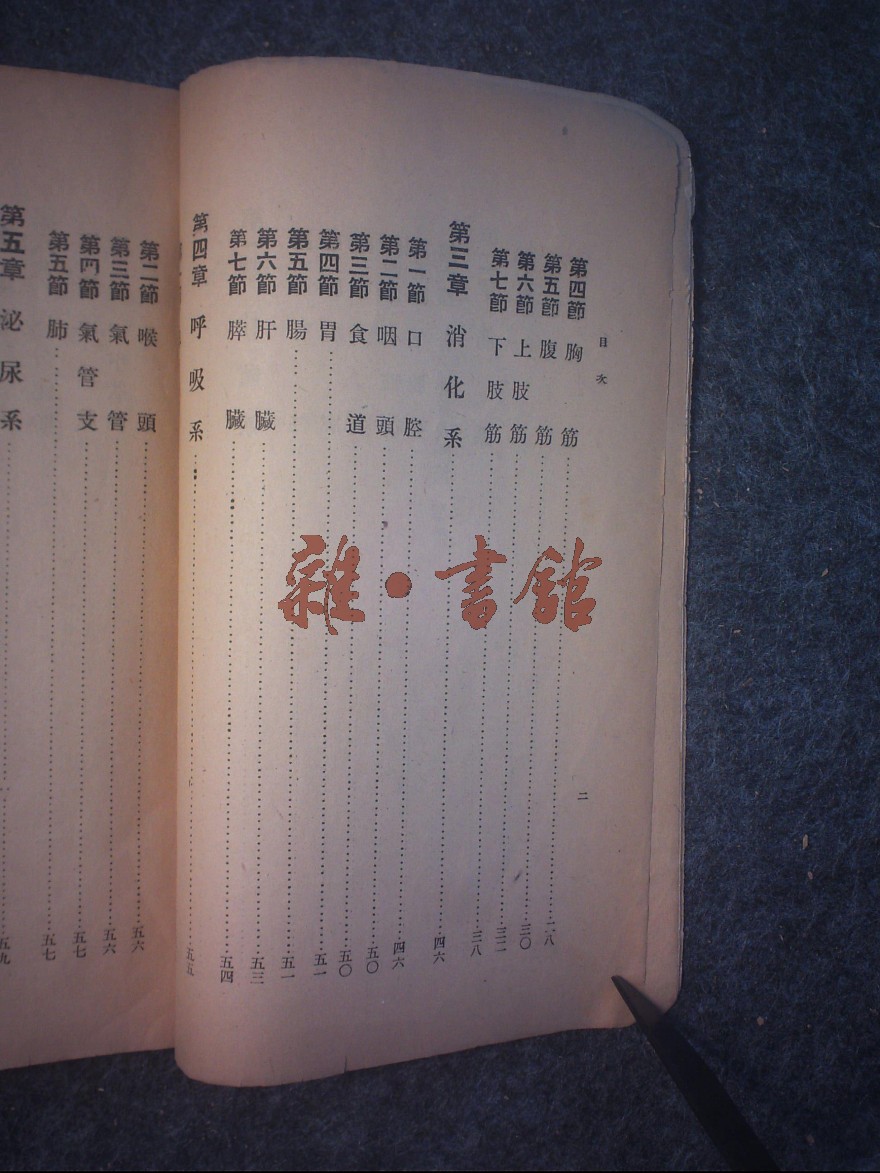 目次
二
第四節 胸筋……二八
第五節 腹筋……三〇
第六節 上肢筋……三二
第七節 下肢筋……三八
第三章 消化系……四六
第一節 口腔……四六
第二節 咽頭……五〇
第三節 食道……五〇
第四節 胃……五一
第五節 腸……五一
第六節 肝臟……五三
第七節 膵臟……五四
第四章 呼吸系……五五
第二節 喉頭……五六
第三節 氣管……五六
第四節 氣管支……五七
第五節 肺……五七
第五章 泌尿系……五九
雜•書館